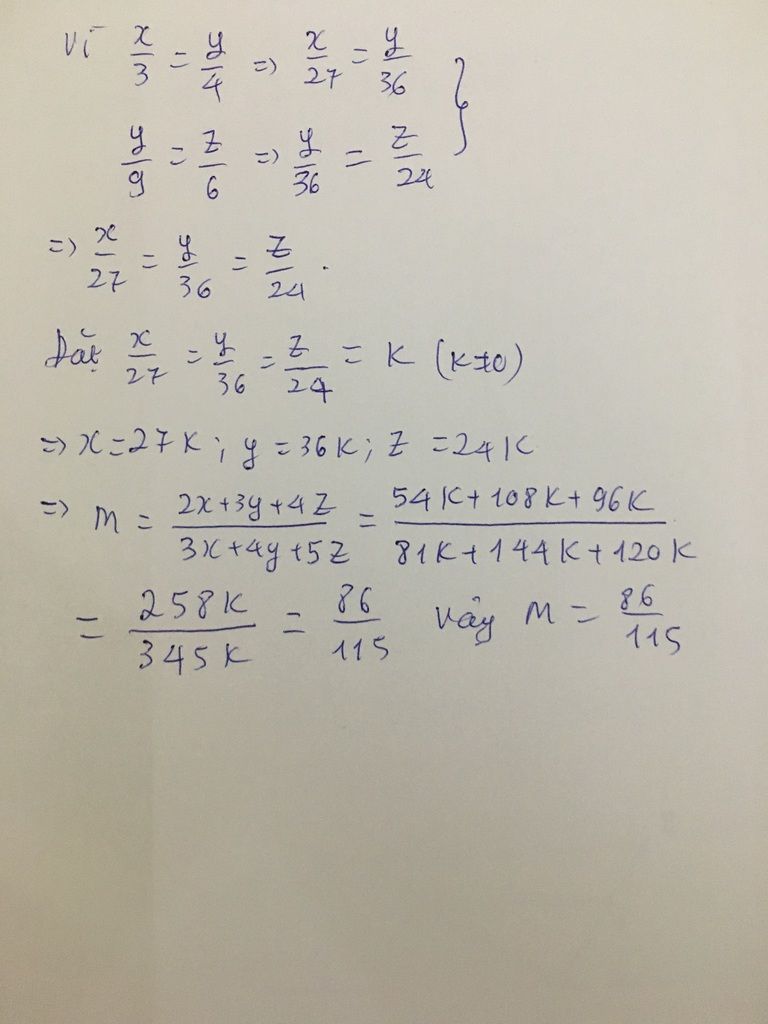 Vì x/3 = y/4 => x/27 = y/36 }
y/9 = z/6 => y/36 = z/24
=> x/27 = y/36 = z/24 .
Đặt x/27 = y/36 = z/24 = K (K≠0)
=> x = 27K ; y = 36K ; z = 24K
=> M = (2x+3y+4z)/(3x+4y+5z) = (54K+108K+96K)/(81K+144K+120K)
= 258K/345K = 86/115 Vậy M = 86/115